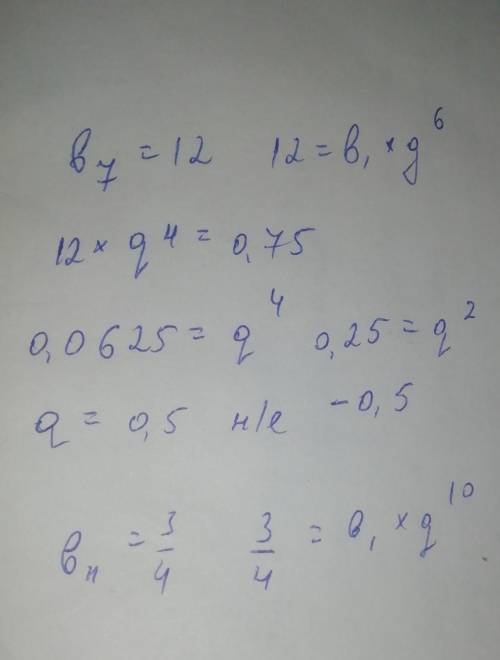 в₇ = 12   12 = в₁ × q⁶
12 × q⁴ = 0,75
0,0625 = q⁴   0,25 = q²
q = 0,5 и/е -0,5
в₁₁ = 3/4   3/4 = в₁ × q¹⁰